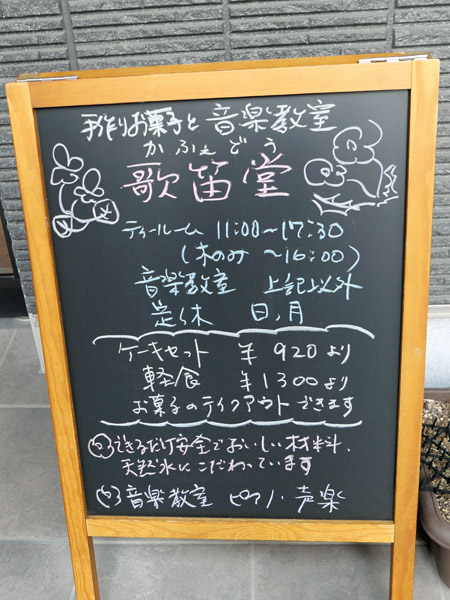 手作りお菓子と音楽教室
かふぇどう
歌笛堂
ティールーム 11:00〜17:30
(木のみ 〜16:00)
音楽教室 上記以外
定休 日,月
ケーキセット ¥920より
軽食 ¥1300より
お菓子のテイクアウトできます
できるだけ安全でおいしい材料、
天然水にこだわっています
音楽教室 ピアノ・声楽